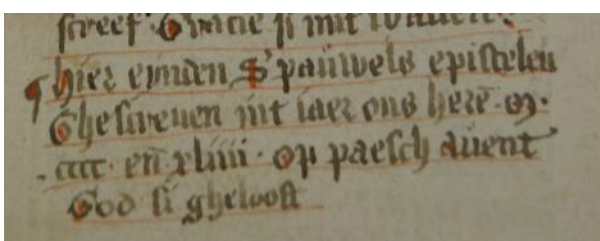 screef Gracie si mit v allen.
¶ hier eynden S' pauwels epistelen
Ghescreuen int iaer ons here m.
.cccc. en xliiii. op paesch auent
God si gheloeft